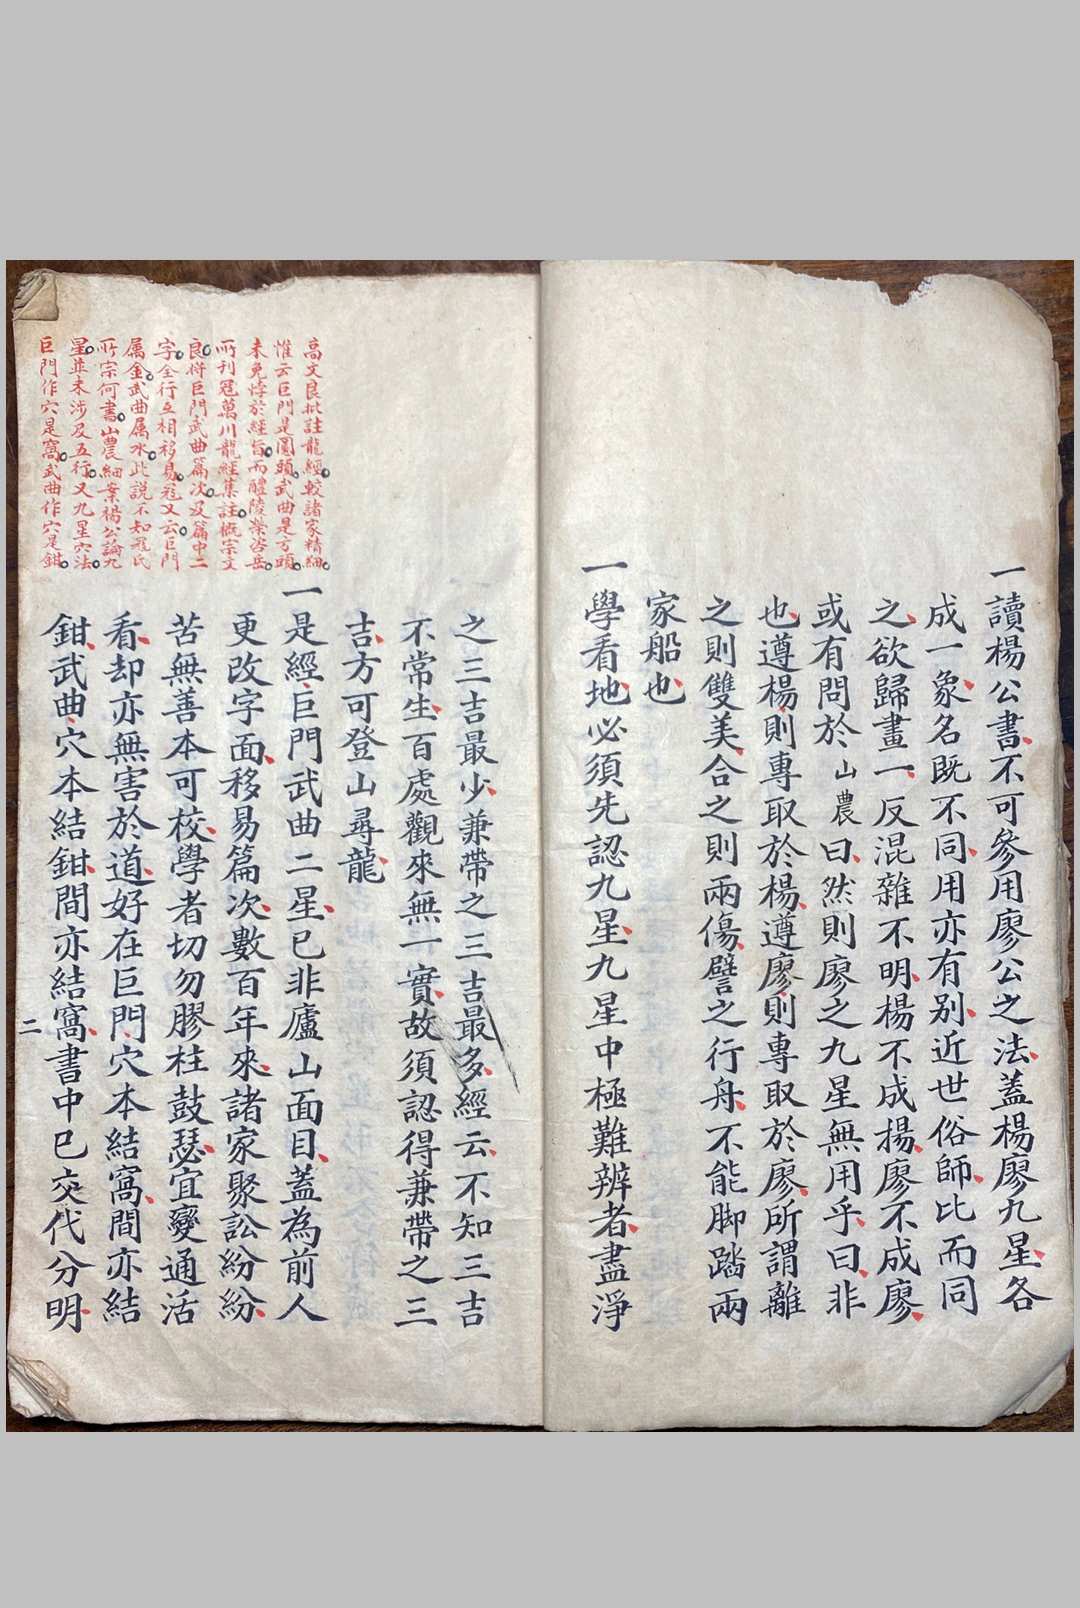 一讀楊公書不可參用廖公之法蓋楊廖九星各
成一象名既不同用亦有别近世俗師比而同
之欲歸畫一反混雜不明楊不成楊廖不成廖
或有問於山農曰然則廖之九星無用乎曰非
也遵楊則專取於楊遵廖則專取於廖所謂離
之則雙美合之則兩傷譬之行舟不能脚踏兩
家船也
一學看地必須先認九星九星中極難辨者盡淨
之三吉最少兼帶之三吉最多經云不知三吉
不常生百處觀來無一實故須認得兼帶之三
吉方可登山尋龍
一是經巨門武曲二星已非廬山面目蓋為前人
更改字面移易篇次數百年來諸家聚訟紛紛
苦無善本可校學者切勿膠柱鼓瑟宜變通活
看却亦無害於道好在巨門穴本結窩間亦結
鉗武曲穴本結鉗間亦結窩書中已交代分明
二
高文良批註龍經較諸家精細
惟云巨門是圓頭武曲是方頭
未免悖於經旨而醴陵榮咨岳
所刊冠萬川龍經集註概宗文
良將巨門武曲篇次及篇中二
字全行互相移易冠又云巨門
属金武曲属水此説不知冠氏
所宗何書山農細案楊公論九
星並未涉及五行又九星穴法
巨門作穴是窩武曲作穴是鉗